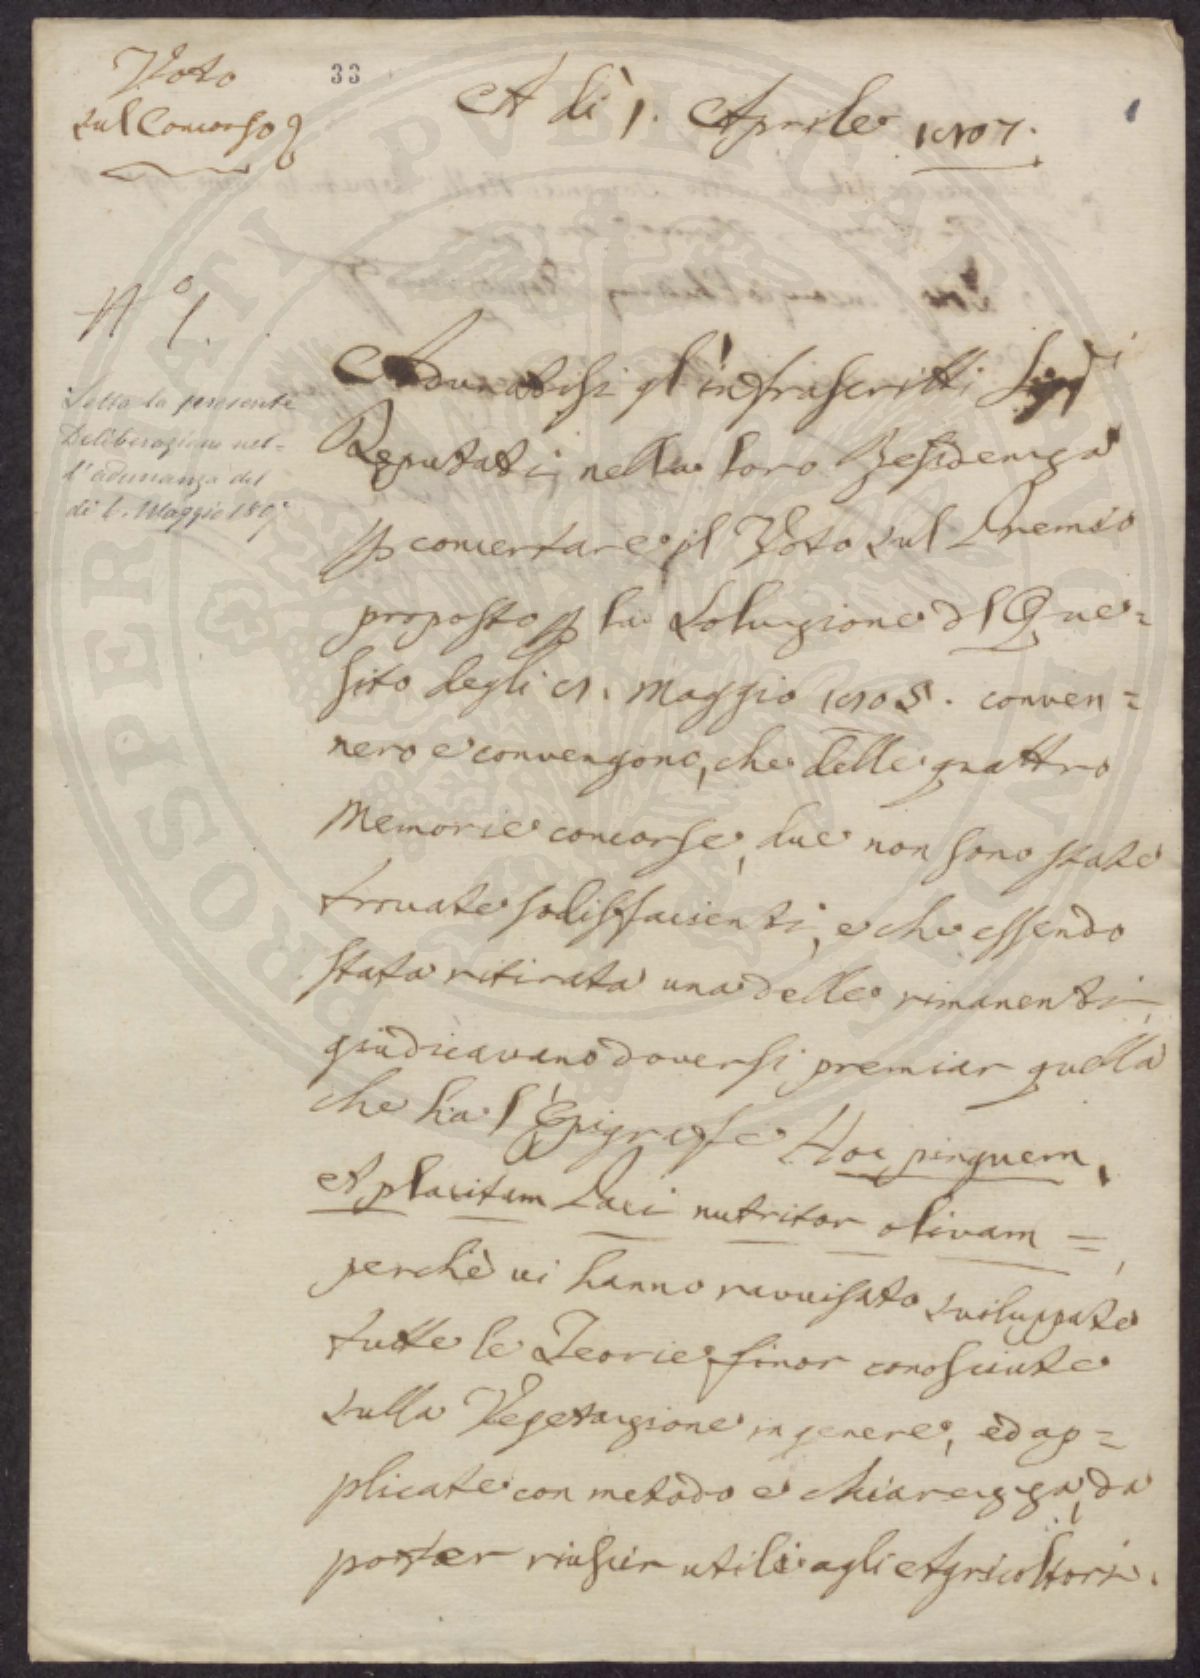 Voto
sul Concorso
33
A dì 1. Aprile 1807.
1
N.° 1.
Letta la presente
Deliberazione nel-
l'adunanza del
dì 6. Maggio 1807
Adunatisi gl'infrascritti Sigri
Deputati nella loro Residenza
p concertare il Voto sul Premio
proposto p la Soluzione dl Que=
sito degli 8. Maggio 1805. conven=
nero e convengono, che delle quattro
Memorie concorse, due non sono state
trovate sodisfacienti, e che essendo
stata ritirata una delle rimanenti,
giudicavano doversi premiar quella
che ha l'Epigrafe Hoc pinguem,
et placitam Paci nutritor olivam =,
perchè vi hanno ravvisato sviluppate
tutte le Teorie finor conosciute
sulla Vegetazione in genere, ed ap=
plicate con metodo e chiarezza, da
poter riuscir utili agli Agricoltori.
PROSPERITATI PUBLICAE AUGENDAE